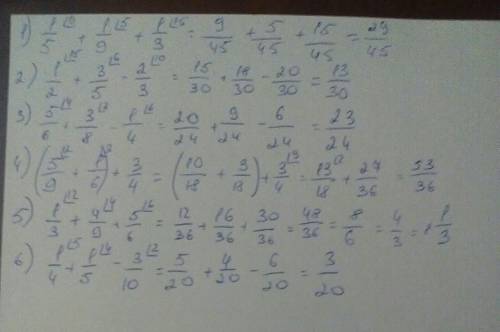 1) 1/5⌊9 + 1/9⌊5 + 1/3⌊15 = 9/45 + 5/45 + 15/45 = 29/45
2) 1/2⌊15 + 3/5⌊6 - 2/3⌊10 = 15/30 + 18/30 - 20/30 = 13/30
3) 5/6⌊4 + 3/8⌊3 - 1/4⌊6 = 20/24 + 9/24 - 6/24 = 23/24
4) (5/9⌊2 + 1/6⌊3) + 3/4 = (10/18 + 3/18) + 3/4⌊9 = 13/18⌊2 + 27/36 = 53/36
5) 1/3⌊12 + 4/9⌊4 + 5/6⌊6 = 12/36 + 16/36 + 30/36 = 48/36 = 8/6 = 4/3 = 1 1/3
6) 1/4⌊5 + 1/5⌊4 - 3/10⌊2 = 5/20 + 4/20 - 6/20 = 3/20